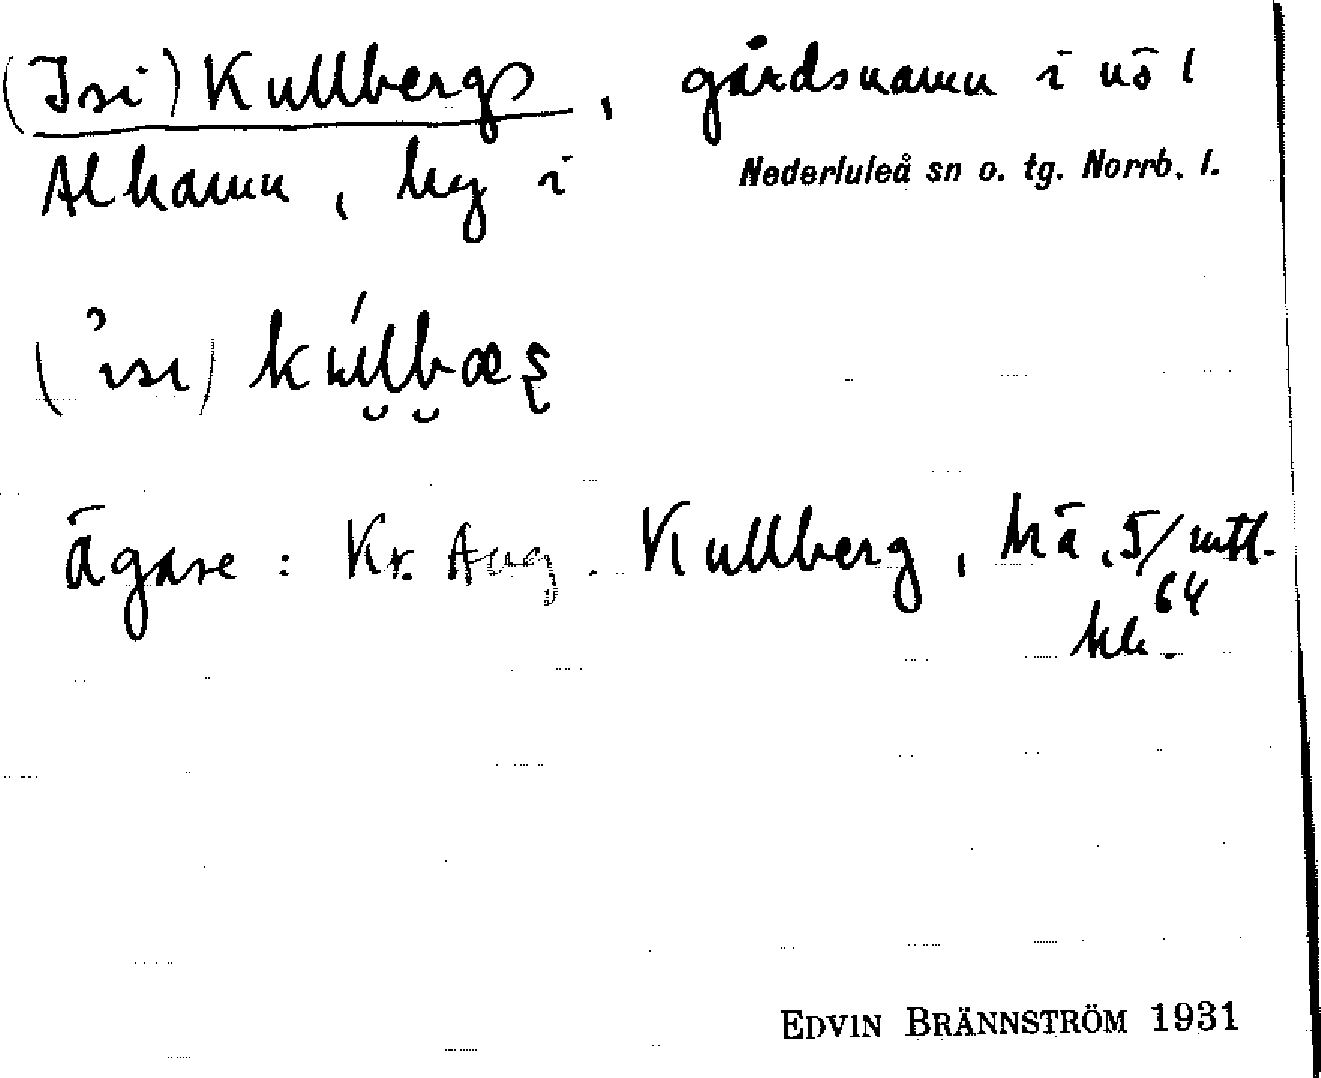 (Isi) Kullbergs, gårdsnamn i nö l
Alhamn, by i Nederluleå sn o. tg. Norrb. l.
ägare: Kr. Aug. Kullberg, hä, 5/64 mtl.
EDVIN BRÄNNSTRÖM 1931